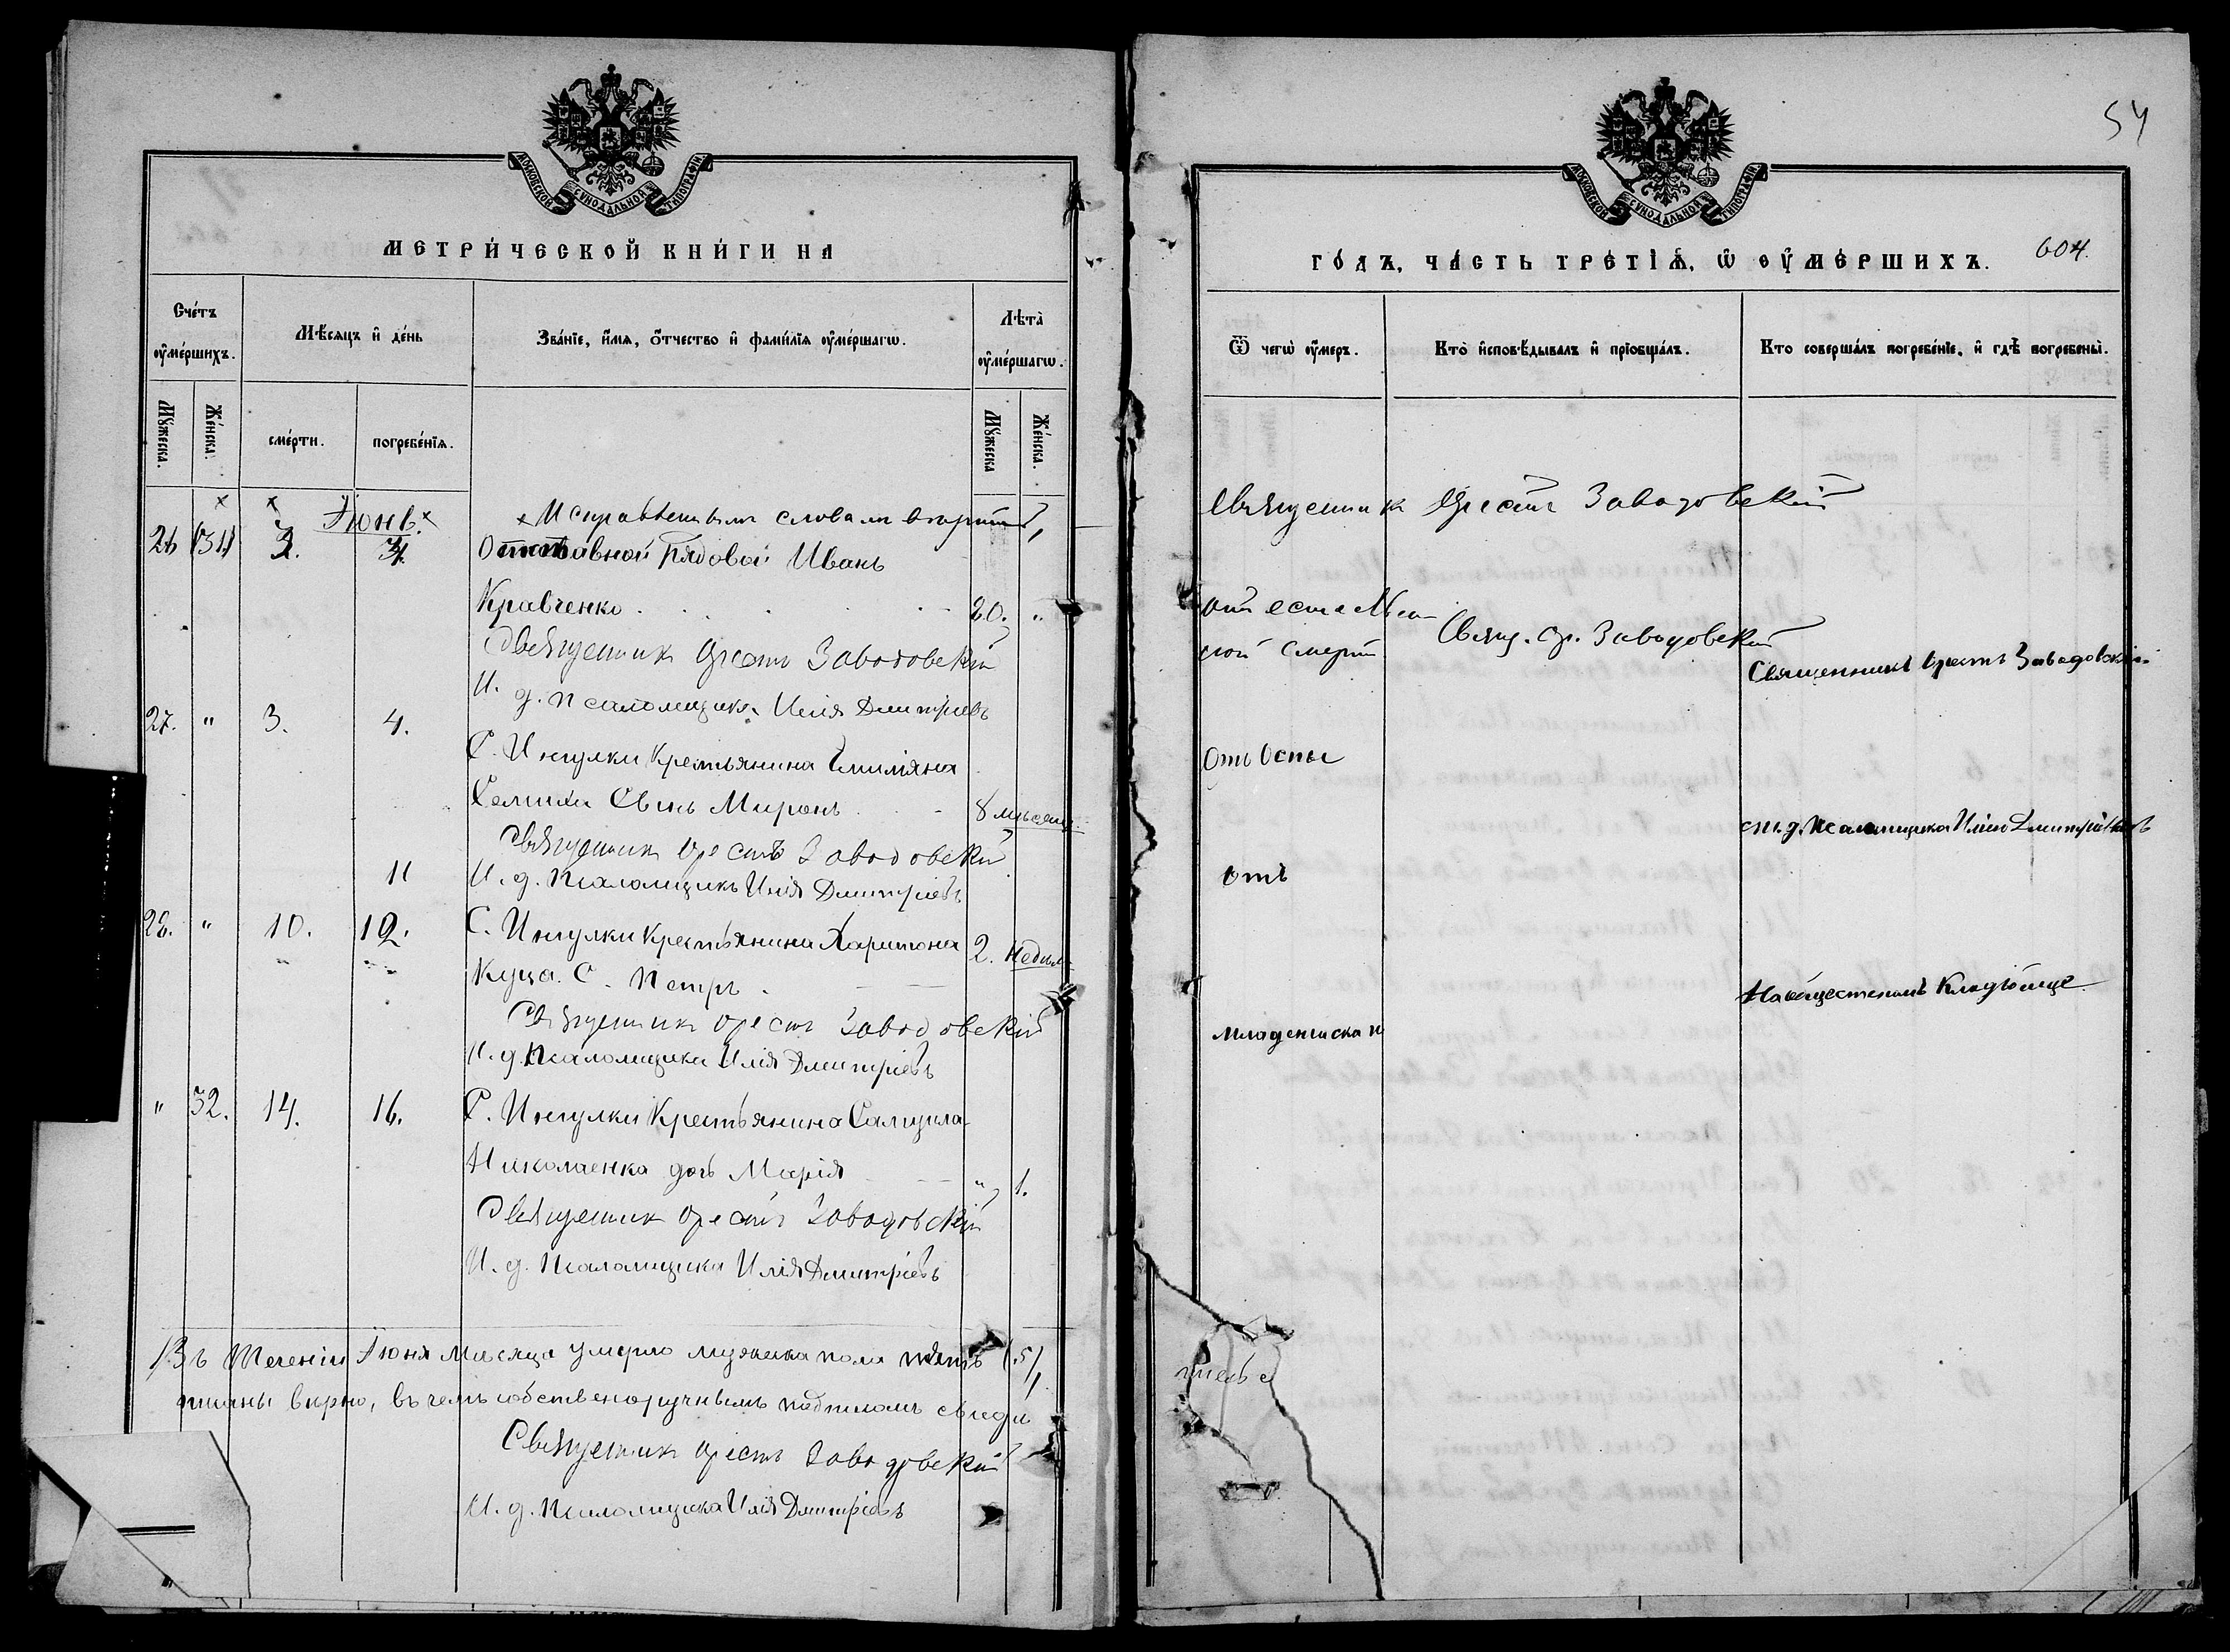 МОСКОВСКОЙ СѴНОДАЛЬНОЙ ТИПОГРАФІИ.
МЕТРИ́ЧЕСКОЙ КНИ́ГИ НА
Сче́тъ ᲂу҆ме́ршихъ.
Мѣ́сяцъ и҆ де́нь
Зва́нїе, и҆́мя, ѻ҆́тчество и҆ фами́лїя ᲂу҆ме́ршагѡ.
Лѣта̀ ᲂу҆ме́ршагѡ.
Мꙋ́жеска.
Же́нска.
сме́рти.
погребе́нїѧ.
Мꙋ́жеска
Же́нска.
Іюнь.
Исправленнымъ словамъ вѣрить
26 (31) 3. 4. Отставной Рядовой Иванъ
Кравченко 80. "
Священникъ Орестъ Заводовскій
И. д. псаломщика Илія Дмитріевъ
27. " 3. 4.
С. Ингулки Крестьянина Емиліяна
Сынъ Миронъ 8 мѣсяц
Священникъ Орестъ Заводовскій
11 И. д. Псаломщикъ Илія Дмитріевъ
28. " 10. 12. С. Ингулки Крестьянина Харитона 2. недѣл
Куца. С. Петръ
Священникъ Орестъ Заводовскій
И. д. Псаломщика Илія Дмитріевъ
" 32. 14. 16. С. Ингулки Крестьянина Самуила
Николаенка дочь Марія " 1.
Священникъ Орестъ Заводовскій
И. д. Псаломщика Илія Дмитріевъ
Въ теченіи Іюня мѣсяца умерло мужеска пола пять (5)
писаны вѣрно, въ чемъ собственоручнымъ подписомъ свиди
Священникъ Орестъ Заводовскій
И. д. Псаломщика Илія Дмитріевъ
54
МОСКОВСКОЙ СѴНОДАЛЬНОЙ ТИПОГРАФІИ.
ГО́ДЪ, ЧА́СТЬ ТРЕ́ТІѦ, Ѡ҆ ОУ҆МЕ́РШИХЪ. 604.
Ѿ чегѡ̀ ᲂу҆́меръ.
Кто̀ и҆сповѣ́дывалъ и҆ прїѡбща́лъ.
Кто соверша́лъ погребе́нїе, и҆ гдѣ̀ погребены̀.
Священникъ Орестъ Заводовскій
ной смерти Свящ. Ор. Заводовскій
Священникъ Орестъ Заводовскій
Отъ Оспы
с и. д. Псаломщика Иліею Дмитріевымъ
Отъ
На общественомъ Кладбище
Младенческа